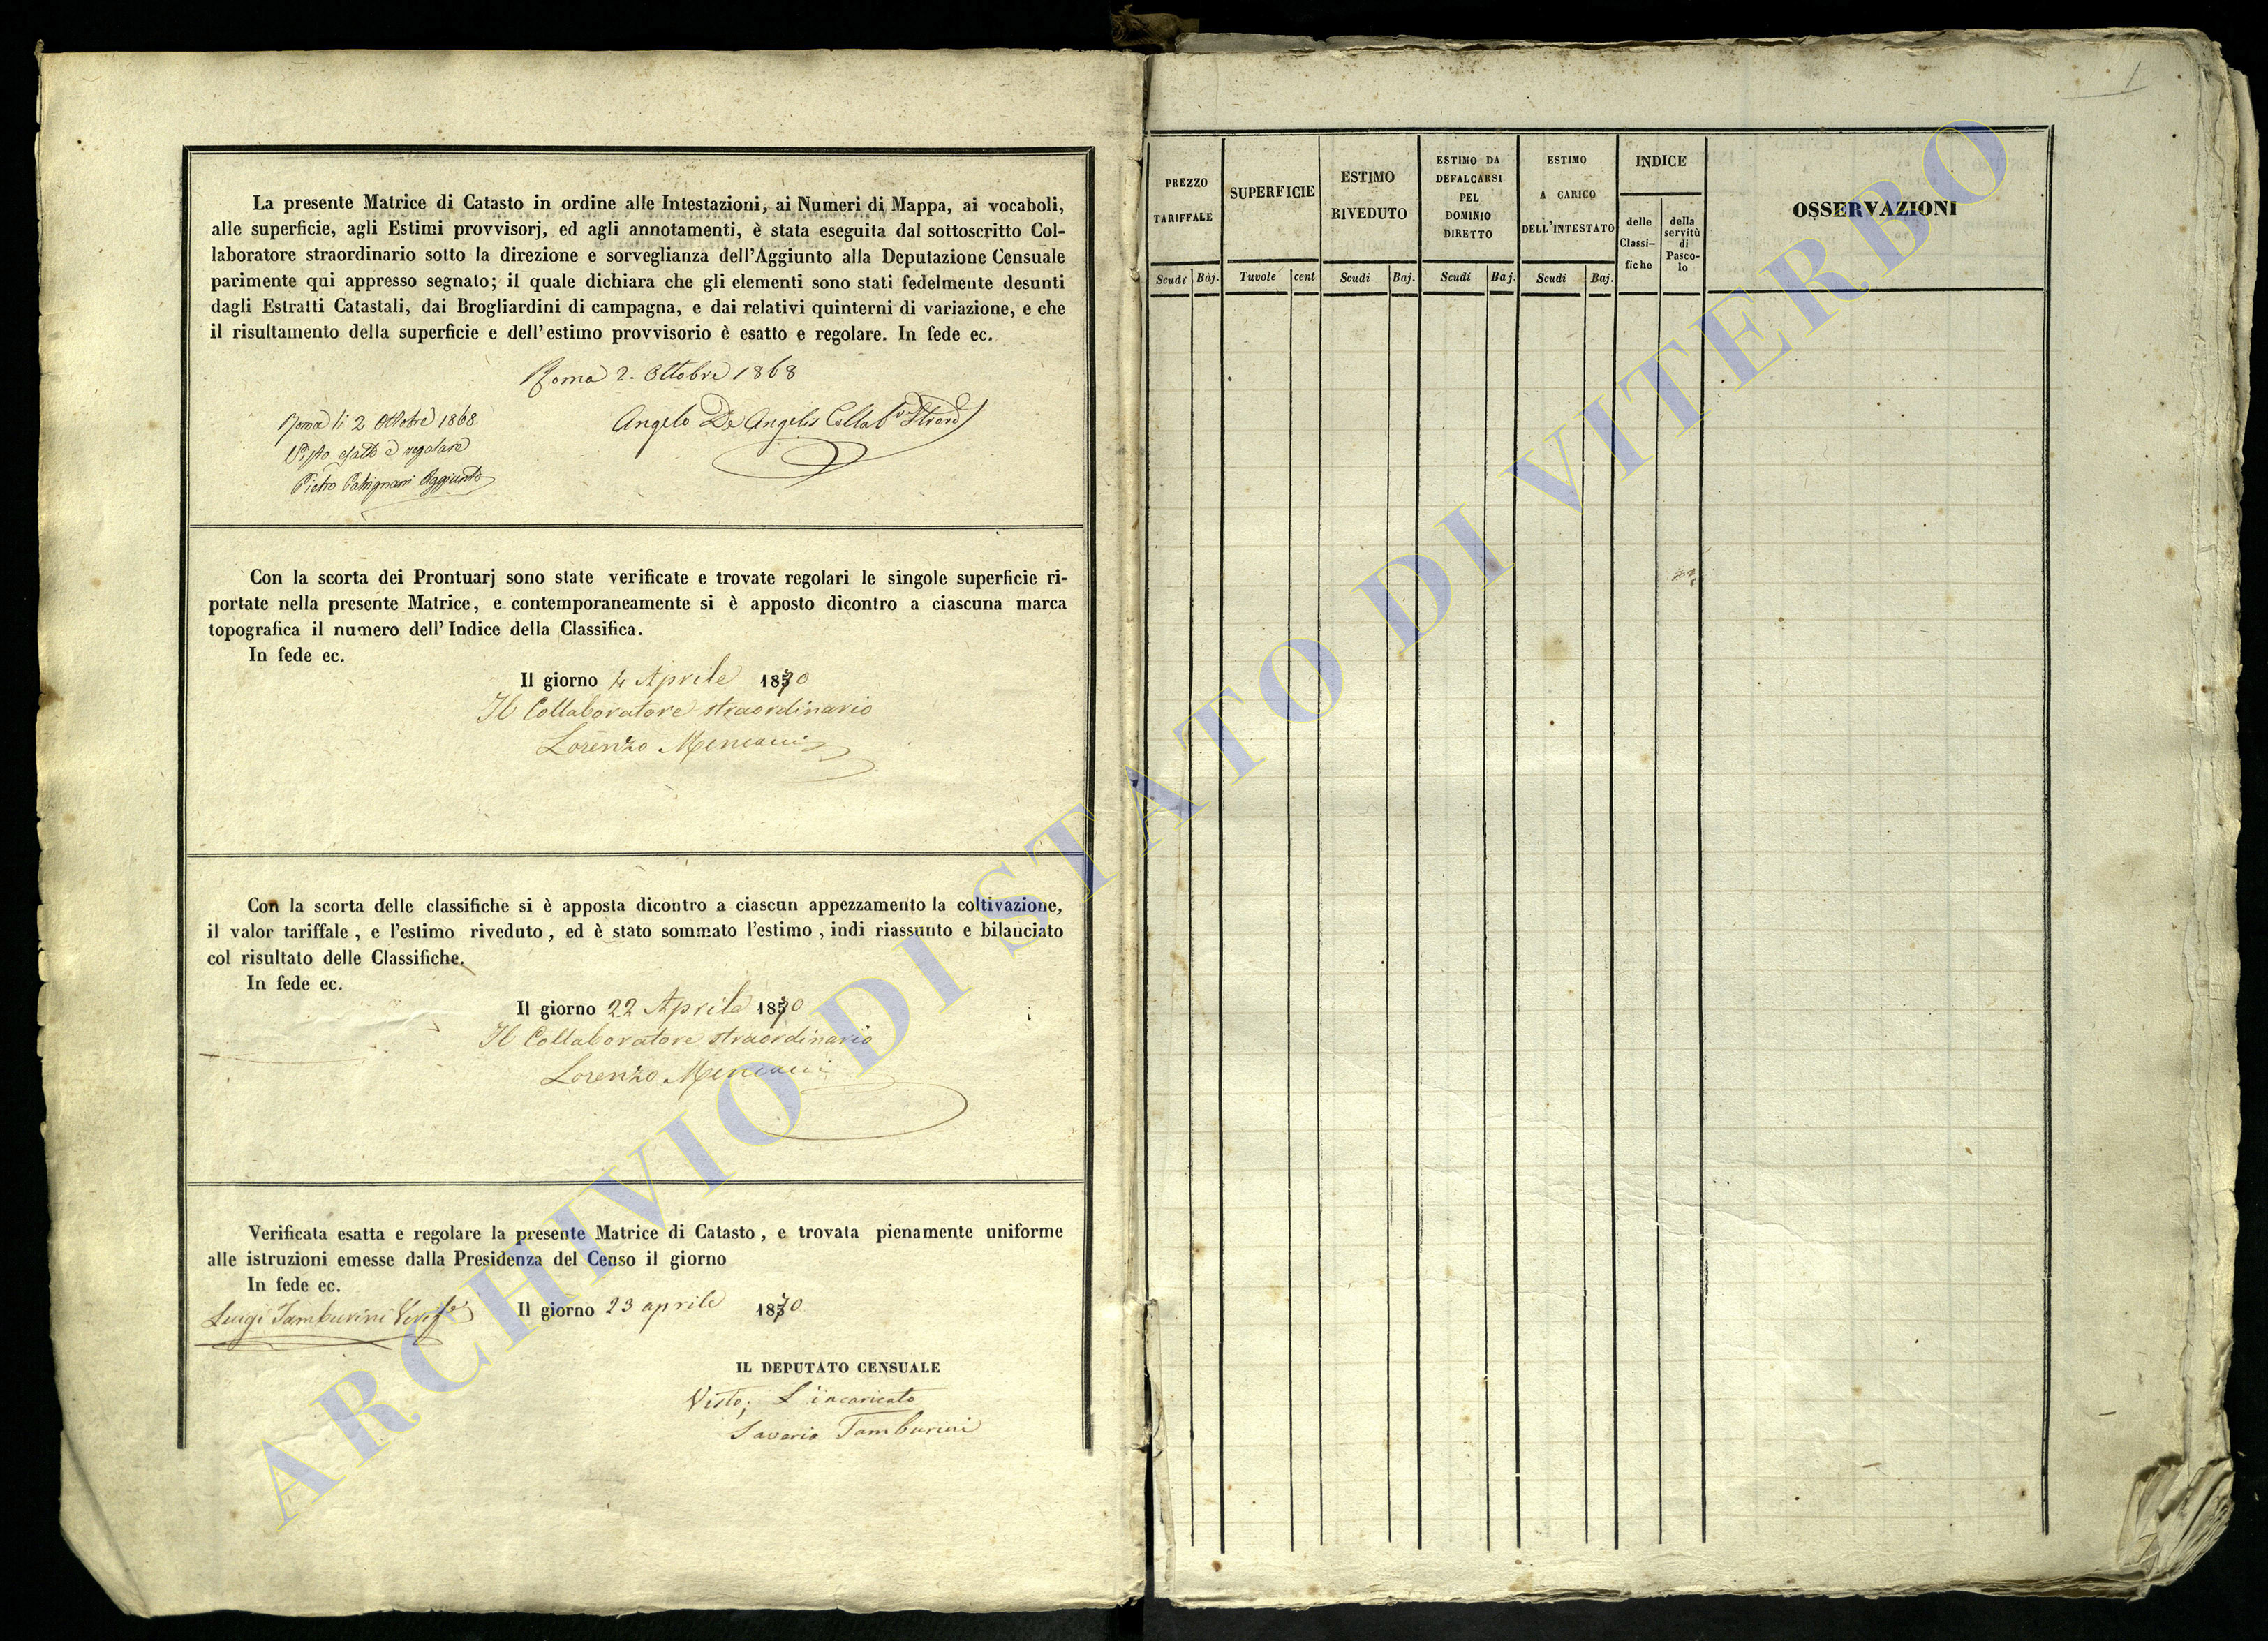 La presente Matrice di Catasto in ordine alle Intestazioni, ai Numeri di Mappa, ai vocaboli,
alle superficie, agli Estimi provvisorj, ed agli annotamenti, è stata eseguita dal sottoscritto Col-
laboratore straordinario sotto la direzione e sorveglianza dell'Aggiunto alla Deputazione Censuale
parimente qui appresso segnato; il quale dichiara che gli elementi sono stati fedelmente desunti
dagli Estratti Catastali, dai Brogliardini di campagna, e dai relativi quinterni di variazione, e che
il risultamento della superficie e dell'estimo provvisorio è esatto e regolare. In fede ec.
Roma 2. Ottobre 1868
Angelo De Angelis Collab
Roma li 2 Ottobre 1868
Visto esatto e regolare
Pietro Aggiunto
Con la scorta dei Prontuarj sono state verificate e trovate regolari le singole superficie ri-
portate nella presente Matrice, e contemporaneamente si è apposto dicontro a ciascuna marca
topografica il numero dell'Indice della Classifica.
In fede ec.
Il giorno 4 Aprile 1870
Il Collaboratore straordinario
Lorenzo
Con la scorta delle classifiche si è apposta dicontro a ciascun appezzamento la coltivazione,
il valor tariffale, e l'estimo riveduto, ed è stato sommato l'estimo, indi riassunto e bilanciato
col risultato delle Classifiche.
In fede ec.
Il giorno 22 Aprile 1870
Il Collaboratore straordinario
Lorenzo
Verificata esatta e regolare la presente Matrice di Catasto, e trovata pienamente uniforme
alle istruzioni emesse dalla Presidenza del Censo il giorno
In fede ec.
Luigi Tamburini Il giorno 23 aprile 1870
IL DEPUTATO CENSUALE
Visto; L'incaricato
Saverio Tamburini
1
PREZZO
TARIFFALE
Scudi Baj.
SUPERFICIE
Tavole cent
ESTIMO
RIVEDUTO
Scudi Baj.
ESTIMO DA
DEFALCARSI
PEL
DOMINIO
DIRETTO
Scudi Baj.
ESTIMO
A CARICO
DELL'INTESTATO
Scudi Baj.
INDICE
delle
Classi-
fiche
della
servitù
di
Pasco-
lo
OSSERVAZIONI
ARCHIVIO DI STATO DI VITERBO